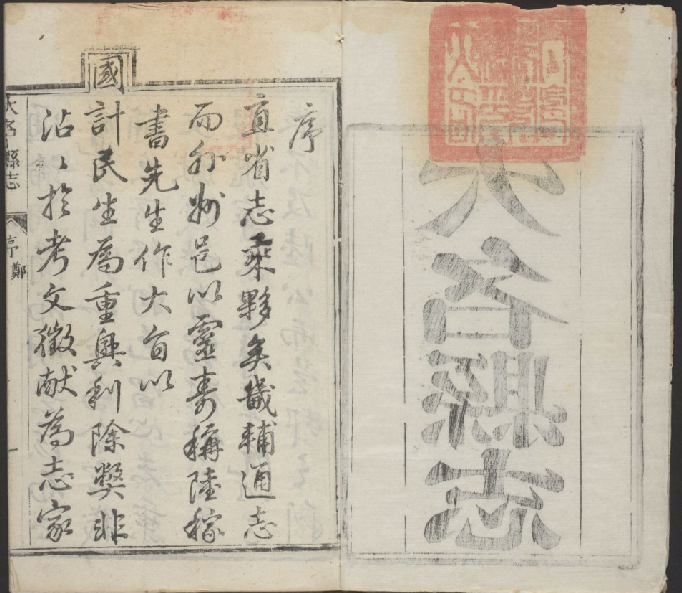 大名縣志
序
直省志乘夥矣畿輔通志
而外州邑以靈壽稱陸稼
書先生作大旨以
國計民生為重興利除獘非
沾〻於考文徵献為志家
大名縣志 序 鄭 一